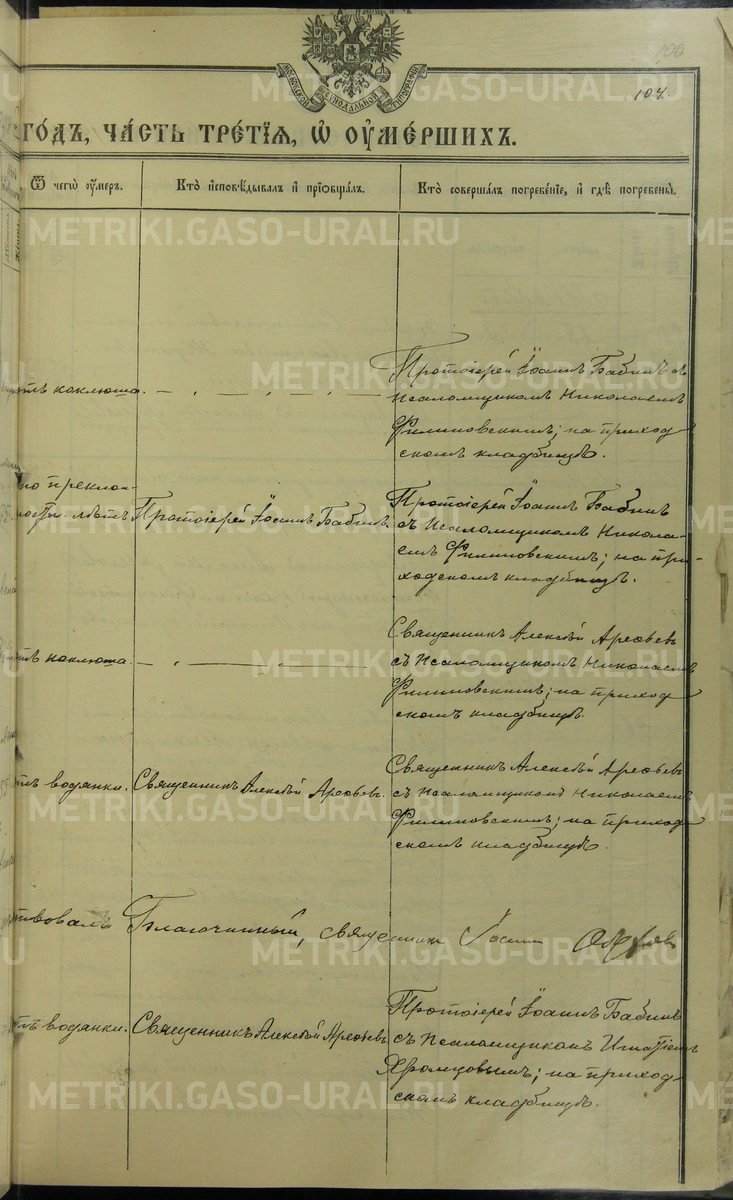 СѴНОДАЛЬНОЙ ТИПОГРАФІИ
100
104.
METRIKI.GASO-URAL.RU
ГО́ДЪ, ЧА́СТЬ ТРЕ́ТІѦ, Ѡ҆ ОУ҆МЕ́РШИХЪ.
Ѿ чегѡ̀ оу҆́меръ.
Кто̀ и҆сповѣ́дывалъ и҆ прїѡбща́лъ.
Кто̀ соверша́лъ погребе́нїе, и҆ гдѣ̀ погребены̀.
METRIKI.GASO-URAL.RU
коклюша.
Протоіерей Іоаннъ Бабинъ съ
Псаломщикомъ Николаемъ
Филиповскимъ; на приход
скомъ кладбищѣ.
METRIKI.GASO-URAL.RU
по преклон-
ности лѣтъ
Протоіерей Іоаннъ Бабинъ.
Протоіерей Іоаннъ Бабинъ
съ Псаломщикомъ Никола-
емъ Филиповскимъ; на при-
ходскомъ кладбищѣ.
METRIKI.GASO-URAL.RU
коклюша.
Священникъ Алексѣй Арефьевъ
съ Псаломщикомъ Николаемъ
Филиповскимъ; на приход
скомъ кладбищѣ.
METRIKI.GASO-URAL.RU
водянки.
Священникъ Алексѣй Арефьевъ.
Священникъ Алексѣй Арефьевъ
съ Псаломщикомъ Николаемъ
Филиповскимъ; на приход
скомъ кладбищѣ.
METRIKI.GASO-URAL.RU
ствовалъ Благочинный, священникъ
METRIKI.GASO-URAL.RU
водянки.
Священникъ Алексѣй Арефьевъ
Протоіерей Іоаннъ Бабинъ
съ Псаломщикомъ Игнатіемъ
на приход
скомъ кладбищѣ.
METRIKI.GASO-URAL.RU